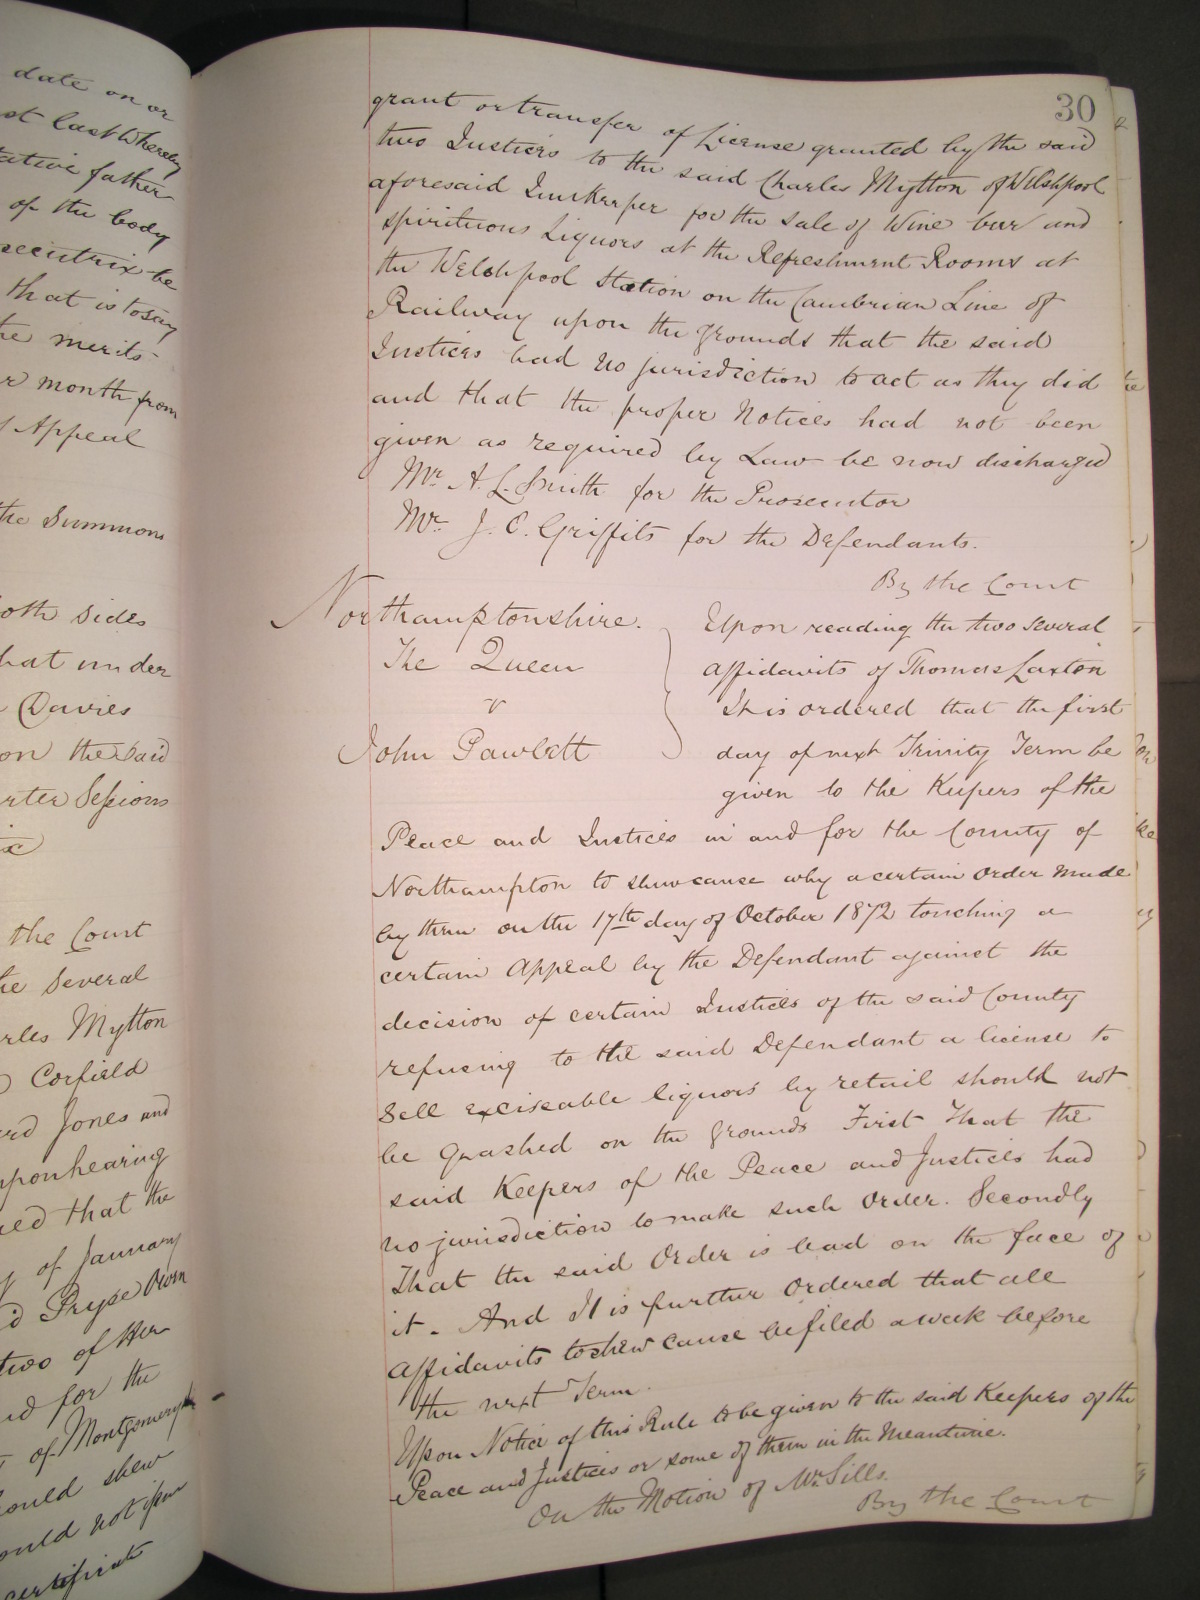 date on or
st last Whereby
tative father
of the body
secutrix be
that is to say
he merits
r month from
Appeal
the Summons
both sides
hat under
Davies
on the said
rter Sessions
the Court
he several
rles Mytton
Corfield
rd Jones and
upon hearing
red that the
of January
d Pryse Owen
two of Her
d for the
of Montgomery
should shew
ould not issue
certificate
30
grant or transfer of License granted by the said
two Justices to the said Charles Mytton of Welshpool
aforesaid Innkeeper for the sale of Wine beer and
spirituous Liquors at the Refreshment Rooms at
the Welshpool Station on the Cambrian Line of
Railway upon the grounds that the said
Justices had no jurisdiction to act as they did
and that the proper Notices had not been
given as required by Law be now discharged
Mr. A. L. Smith for the Prosecutor
Mr. J. C. Griffits for the Defendants.
By the Court
Northamptonshire.
The Queen
v
John Pawlett
Upon reading the two several
affidavits of Thomas Laxton
It is ordered that the first
day of next Trinity Term be
given to the Keepers of the
Peace and Justices in and for the County of
Northampton to shew cause why a certain Order made
by them on the 17th day of October 1872 touching a
certain Appeal by the Defendant against the
decision of certain Justices of the said County
refusing to the said Defendant a license to
Sell exciseable liquors by retail should not
be Quashed on the grounds First That the
said Keepers of the Peace and Justices had
no jurisdiction to make such Order. Secondly
That the said Order is bad on the face of
it. And It is further Ordered that all
Affidavits to shew cause be filed a week before
the next Term.
Upon Notice of this Rule to be given to the said Keepers of the
Peace and Justices or some of them in the Meantime.
On the Motion of Mr. Sills.
By the Court